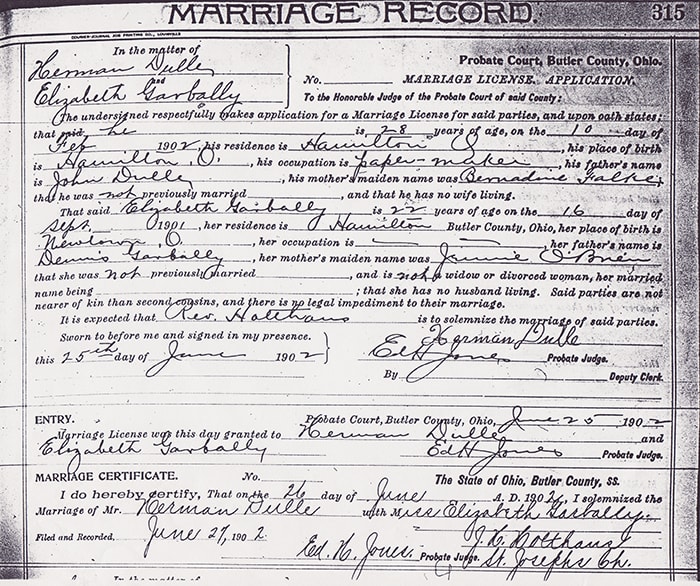 MARRIAGE RECORD. 315
COURIER-JOURNAL JOB PRINTING CO., LOUISVILLE
In the matter of
Herman Dulle
and
Elizabeth Garbally
Probate Court, Butler County, Ohio.
No. MARRIAGE LICENSE, APPLICATION.
To the Honorable Judge of the Probate Court of said County:
The undersigned respectfully makes application for a Marriage License for said parties, and upon oath states;
that said he is 28 years of age, on the 10 day of
Feb 1902, his residence is Hamilton O, his place of birth
is Hamilton, O., his occupation is paper-maker, his father's name
is John Dulle, his mother's maiden name was Bernadine Falke,
that he was not previously married, and that he has no wife living.
That said Elizabeth Garbally is 22 years of age on the 16 day of
Sept. 1901, her residence is Hamilton Butler County, Ohio, her place of birth is
Newtown, O., her occupation is — —, her father's name is
Dennis Garbally, her mother's maiden name was Jennie O'Brien
that she was not previously married, and is not a widow or divorced woman, her married
name being ; that she has no husband living. Said parties are not
nearer of kin than second cousins, and there is no legal impediment to their marriage.
It is expected that Rev. Holthaus is to solemnize the marriage of said parties.
Sworn to before me and signed in my presence. Herman Dulle
this 25th day of June 1902 Ed H Jones Probate Judge.
By Deputy Clerk.
ENTRY. Probate Court, Butler County, Ohio, June 25 1902
Marriage License was this day granted to Herman Dulle and
Elizabeth Garbally Ed H Jones Probate Judge.
MARRIAGE CERTIFICATE. No. The State of Ohio, Butler County, SS.
I do hereby certify, That on the 26 day of June A. D. 1902, I solemnized the
Marriage of Mr. Herman Dulle with Miss Elizabeth Garbally.
Filed and Recorded, June 27, 1902 J. H. Holthaus
Ed. H. Jones. Probate Judge. St. Josephs Ch.
In the matter of